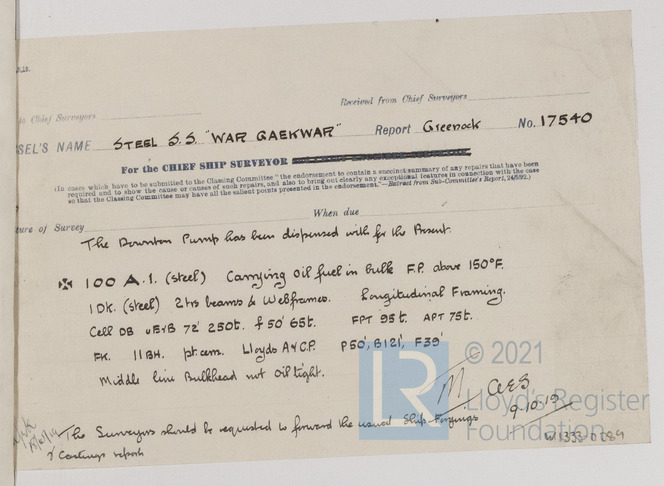 Received from Chief Surveyors
to Chief Surveyors
SEL'S NAME STEEL S.S. "WAR GAEKWAR" Report Greenock No. 17540
For the CHIEF SHIP SURVEYOR
(In cases which have to be submitted to the Classing Committee "the endorsement to contain a succinct summary of any repairs that have been
required and to show the cause or causes of such repairs, and also to bring out clearly any exceptional features in connection with the case
so that the Classing Committee may have all the salient points presented in the endorsement."—Extract from Sub-Committee's Report, 24/5/92.)
ture of Survey When due
The Downton Pump has been dispensed with for the Present.
✠ 100 A.1. (steel) Carrying oil fuel in bulk F.P. above 150°F.
1 Dk. (steel) 2 trs beams & Webframes. Longitudinal Framing.
Cell DB uE&B 72' 250t. f 50' 65t. FPT 95t. APT 75t.
FK. 11 BH. pt. cem. Lloyds A&CP. P50', B121', F39'
Middle line Bulkhead not Oil tight.
M. 
19.10.19
The Surveyors should be requested to forward the usual Ship Forgings
& Castings reports
W1333-0089
© 2021
LR
Lloyd's Register
Foundation